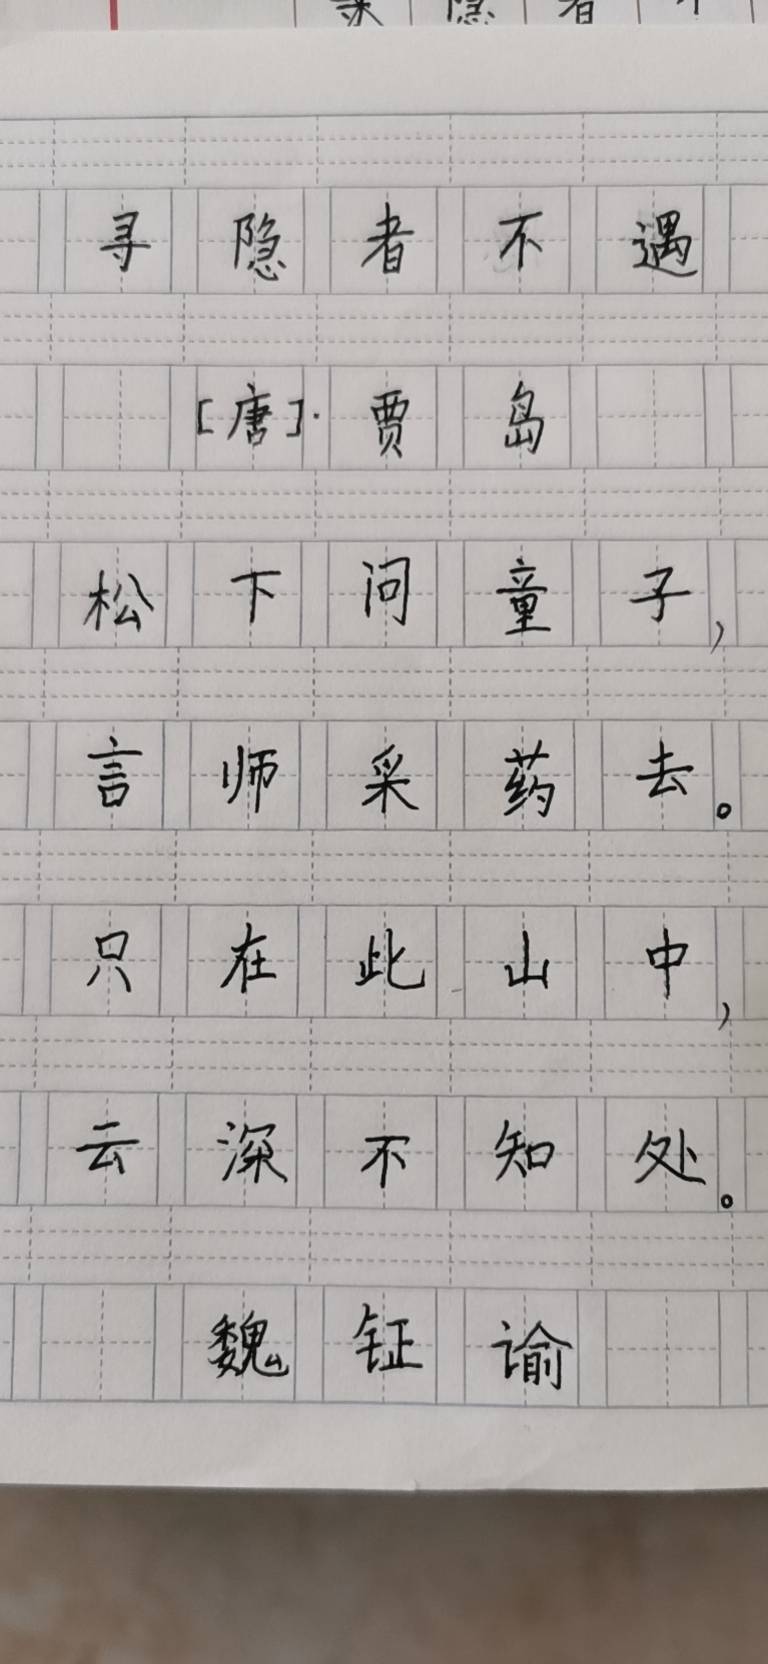 寻隐者不遇
[唐]·贾岛
松下问童子，
言师采药去。
只在此山中，
云深不知处。
魏钲谕